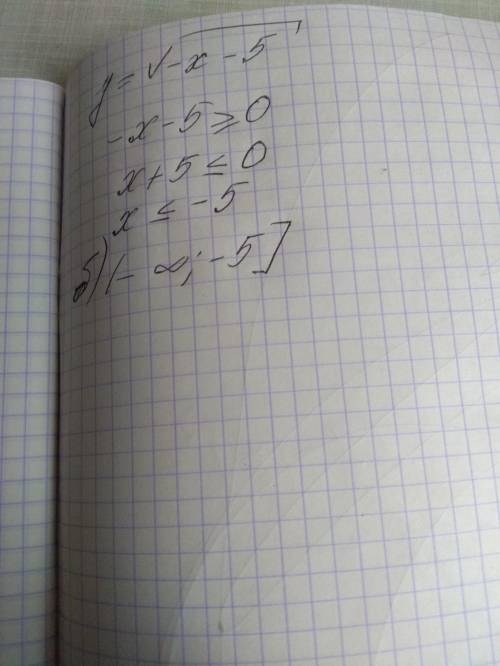 y = √-x - 5
-x - 5 ≥ 0
x + 5 ≤ 0
x ≤ -5
б) (-∞; -5]